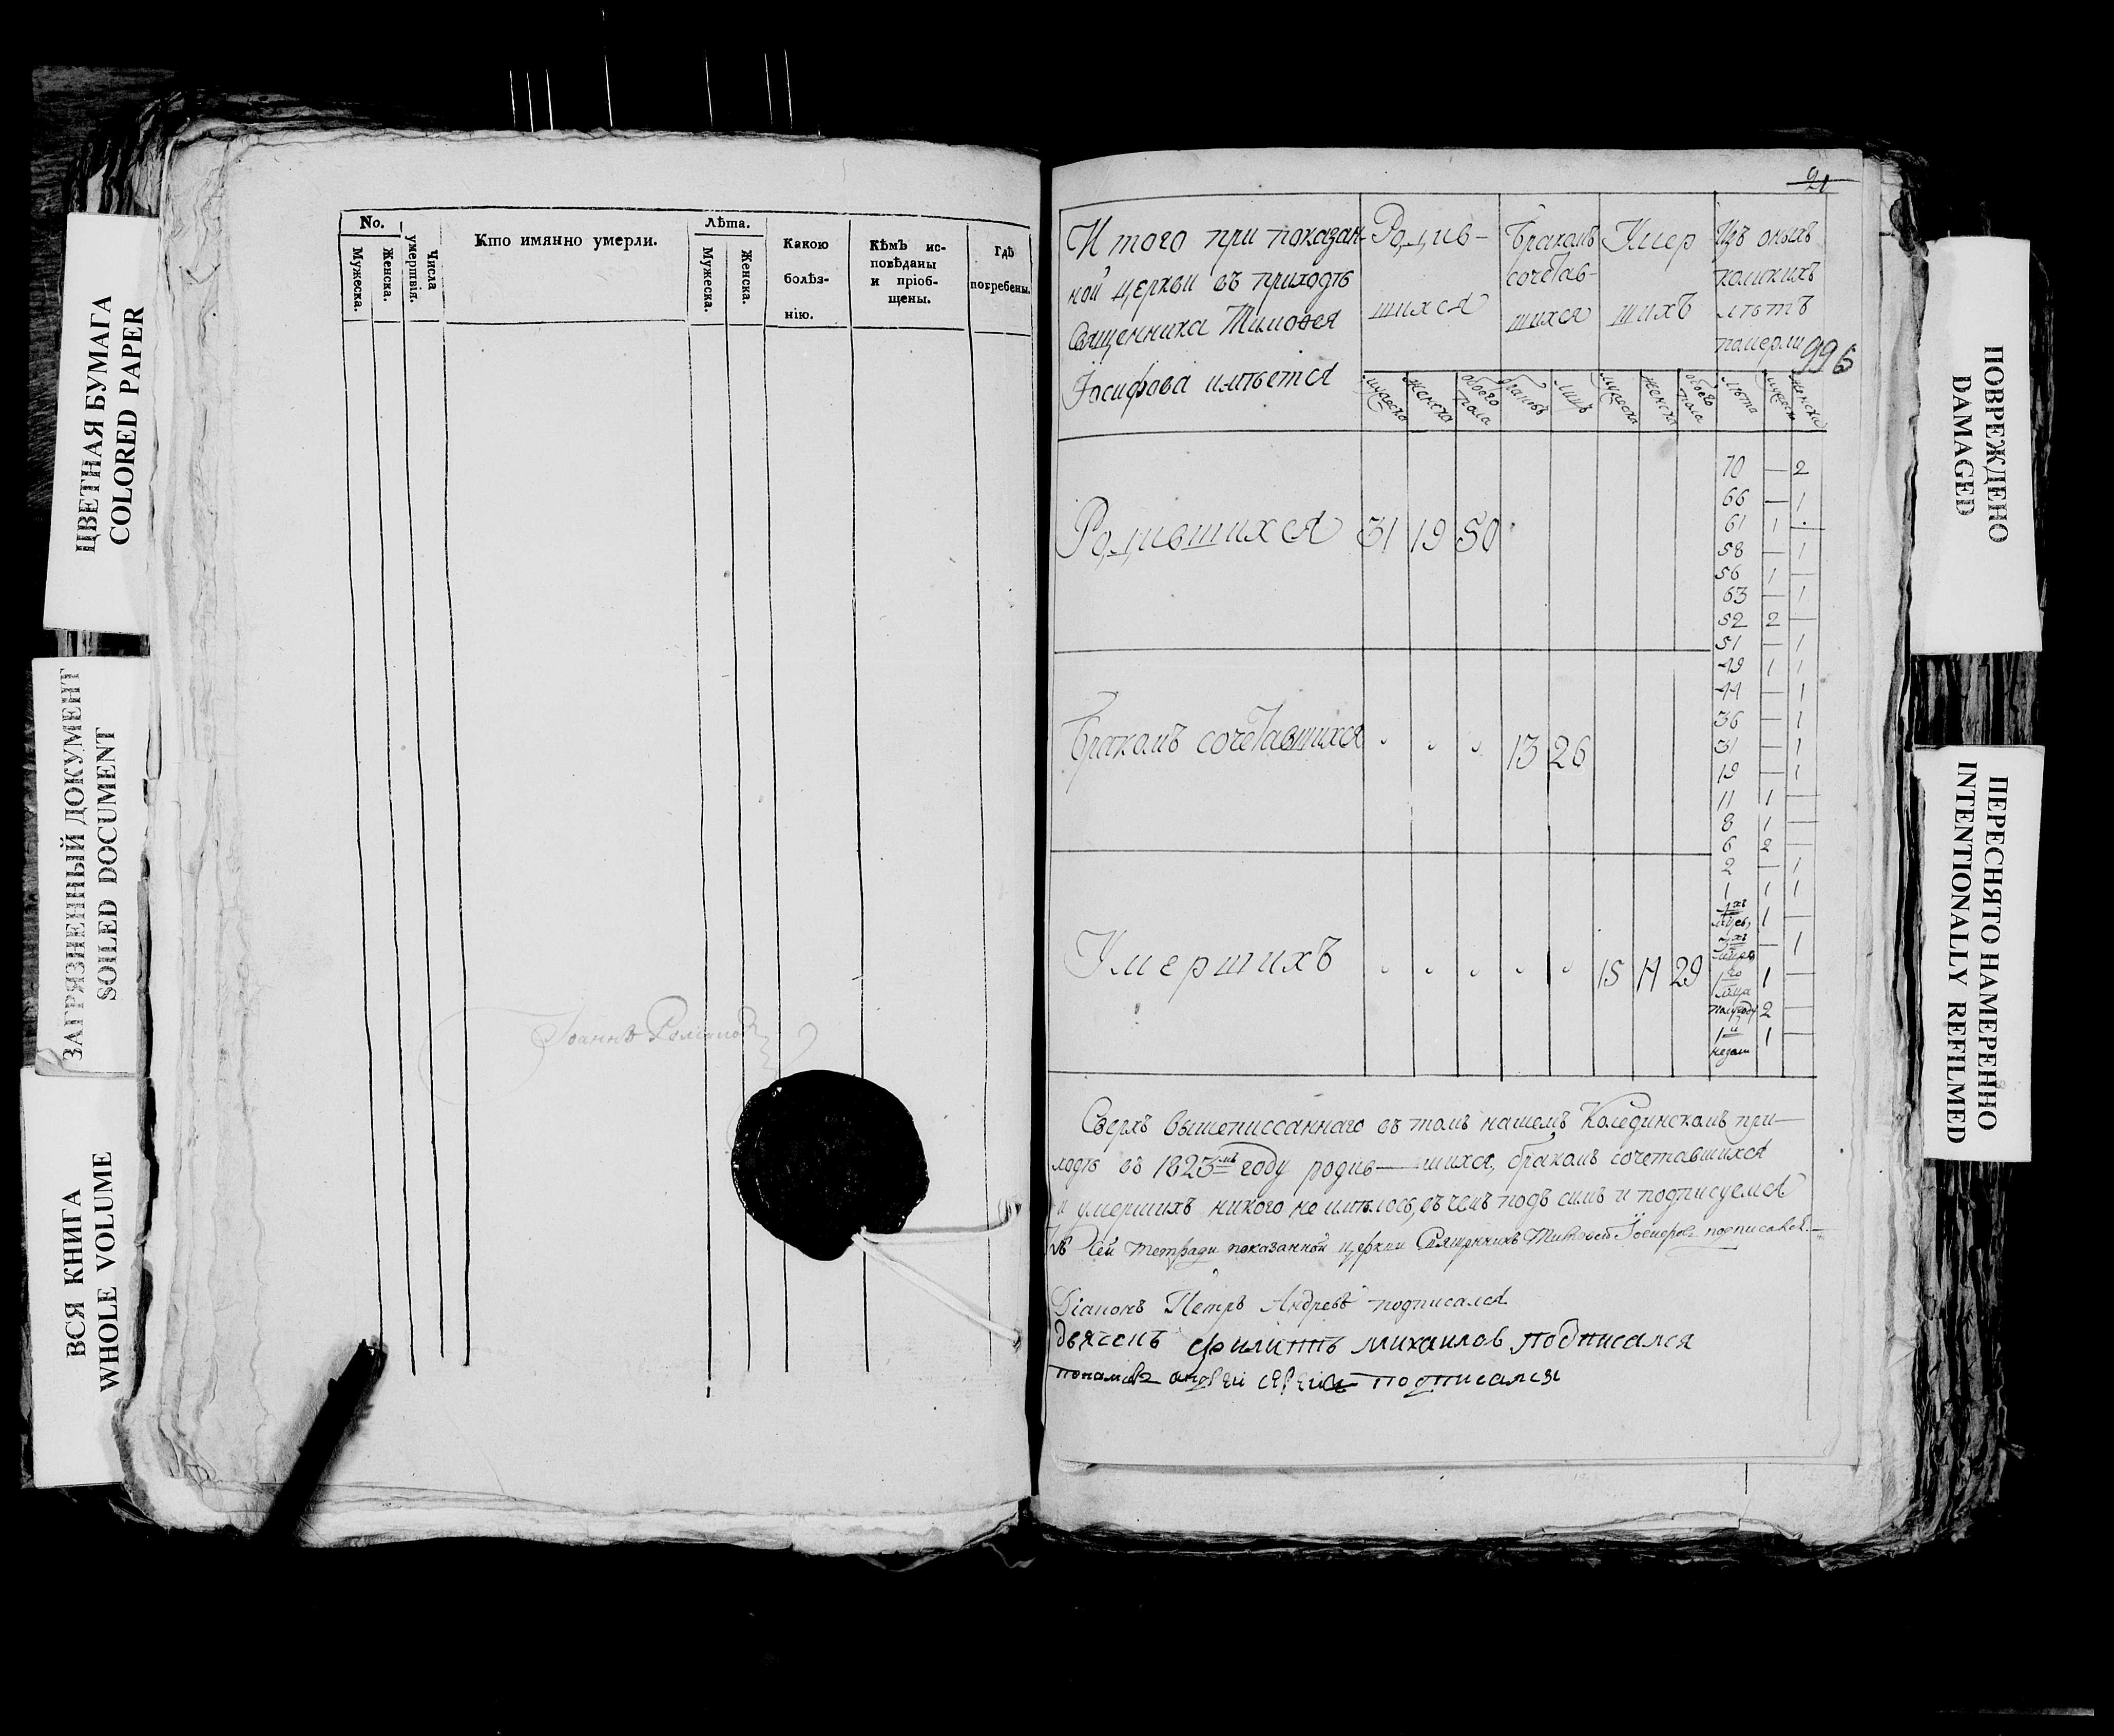 ЦВЕТНАЯ БУМАГА
COLORED PAPER
ЗАГРЯЗНЕННЫЙ ДОКУМЕНТ
SOILED DOCUMENT
ВСЯ КНИГА
WHOLE VOLUME
No.
Мужеска.
Женска.
Числа
умертвія.
Кто имянно умерли.
Лѣта.
Мужеска.
Женска.
Какою
болѣз-
нію.
Кѣмъ ис-
повѣданы
и пріоб-
щены.
Гдѣ
погребены.
Іоаннъ
21
Итого при показан-
ной церкви въ приходѣ
Священника Тимоѳея
Іосифова имѣется
Родив-
шихся
Бракомъ
сочетав-
шихся
Умер
шихъ
Изъ оныхъ
коликихъ
лѣтъ
померли
996
мужеска
женска
обоего
пола
браковъ
лицъ
мужеска
женска
обоего
пола
лѣта
мужеска
женска
Родившихся 31 19 50
Бракомъ сочетавшихся 13 26
Умершихъ 15 14 29
70 — 2
66 — 1
61 1 —
58 — 1
56 1 —
63 — 1
52 2 —
51 — 1
49 1 1
44 — 1
36 — 1
31 — 1
19 — 1
11 1 —
8 1 —
6 2 —
2 — 1
1 1 1
1 —
— 1
1 —
полугоду 2 —
1 недели 1 —
Сверхъ вышеписсаннаго въ томъ нашемъ Колединскомъ при-
ходѣ въ 1823мъ году родив—шихся, бракомъ сочетавшихся
и умершихъ никого не имѣлось, въ чемъ подъ симъ и подписуемся
Къ сей тетради показанной церкви Священникъ Тимоѳей Іосифовъ подписался.—
Діаконъ Петръ Андреевъ подписался
дьячекъ филиппъ михаилов подписался
понамарь андрей сергеив подписался
ПОВРЕЖДЕНО
DAMAGED
ПЕРЕСНЯТО НАМЕРЕННО
INTENTIONALLY REFILMED